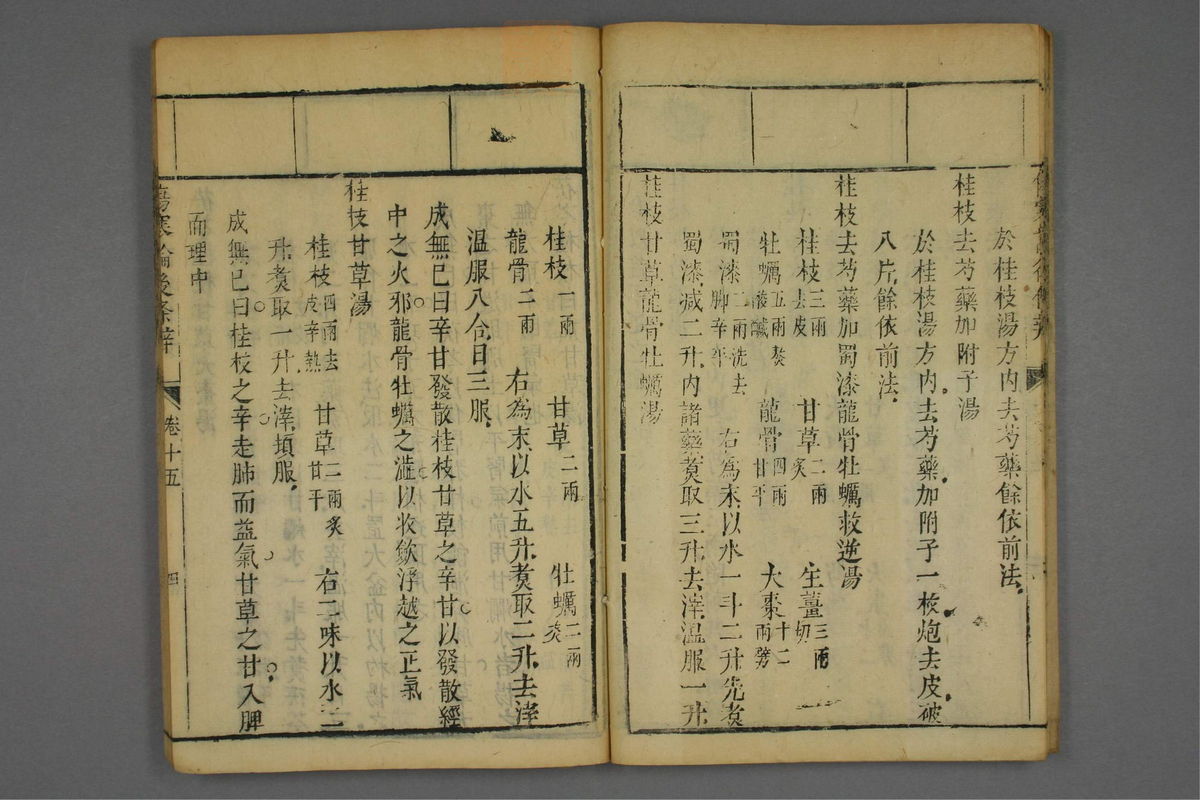 於桂枝湯方內去芍藥餘依前法
桂枝去芍藥加附子湯
於桂枝湯方內去芍藥加附子一枚炮去皮破
八片餘依前法
桂枝去芍藥加蜀漆龍骨牡蠣救逆湯
桂枝三兩去皮 甘草二兩炙 生薑三兩切
牡蠣五兩熬酸鹹 龍骨四兩甘平 大棗十二兩劈
蜀漆二兩洗去脚辛平 右為末以水一斗二升先煑
蜀漆減二升內諸藥煑取三升去滓溫服一升
桂枝甘草龍骨牡蠣湯
桂枝一兩 甘草二兩 牡蠣二兩炙
龍骨二兩 右為末以水五升煑取二升去滓
溫服八合日三服
成無已曰辛甘發散桂枝甘草之辛甘以發散經
中之火邪龍骨牡蠣之澁以收歛浮越之正氣
桂枝甘草湯
桂枝四兩去皮辛熱 甘草二兩炙甘平 右二味以水三
升煑取一升去滓頓服
成無已曰桂枝之辛走肺而益氣甘草之甘入脾
而理中
傷寒論後條辨
卷十五
四